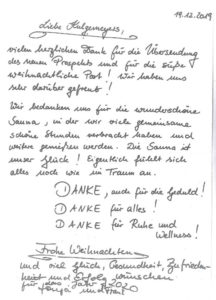 19.12.2019
Liebe Hulgemeyers,
vielen herzlichen Dank für die Übersendung
des neuen Prospekts und für die süße
weihnachtliche Post! Wir haben uns
sehr darüber gefreut!
Wir bedanken uns für die wunderschöne
Sauna, in der wir viele gemeinsame
schöne Stunden verbracht haben und
weitere genießen werden. Die Sauna ist
unser Glück! Eigentlich fühlt sich
alles noch wie im Traum an.
DANKE, auch für die Geduld!
DANKE für alles!
DANKE für Ruhe und
Wellness!
Frohe Weihnachten
und viel Glück, Gesundheit, Zufrieden-
heit und Erfolg wünschen
für das Jahr 2020
und